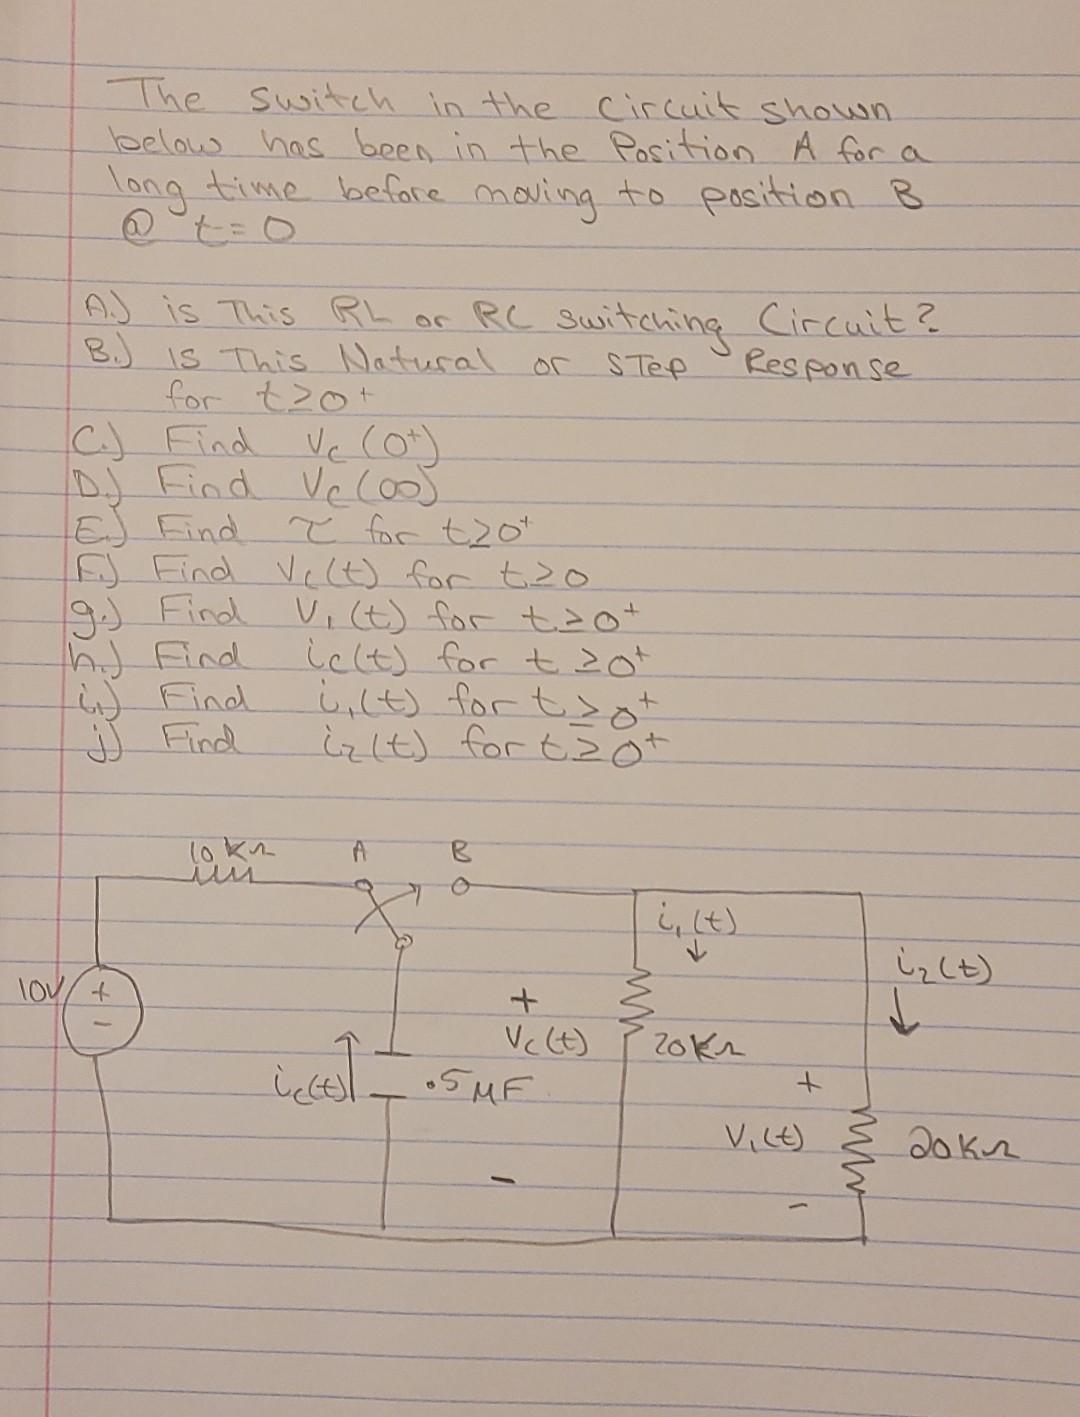 The switch in the Circuit shown
below has been in the Position A for a
long time before moving to position B
@ t=0
A.) is This RL or RC switching Circuit?
B.) IS This Natural or STEP Response
for t≥0+
C.) Find Vc (0+)
D.) Find Vc(∞)
E.) Find τ for t≥0+
F.) Find Vc(t) for t≥0
g.) Find V₁(t) for t≥0+
h.) Find ic(t) for t≥0+
i.) Find i₁(t) for t≥0+
j) Find i₂(t) for t≥0+
10 KΩ A B
i₁(t)
i₂(t)
10V
+
-
+
Vc(t)
-
20KΩ
ic(t)
.5 μF
+
V₁(t)
-
20KΩ